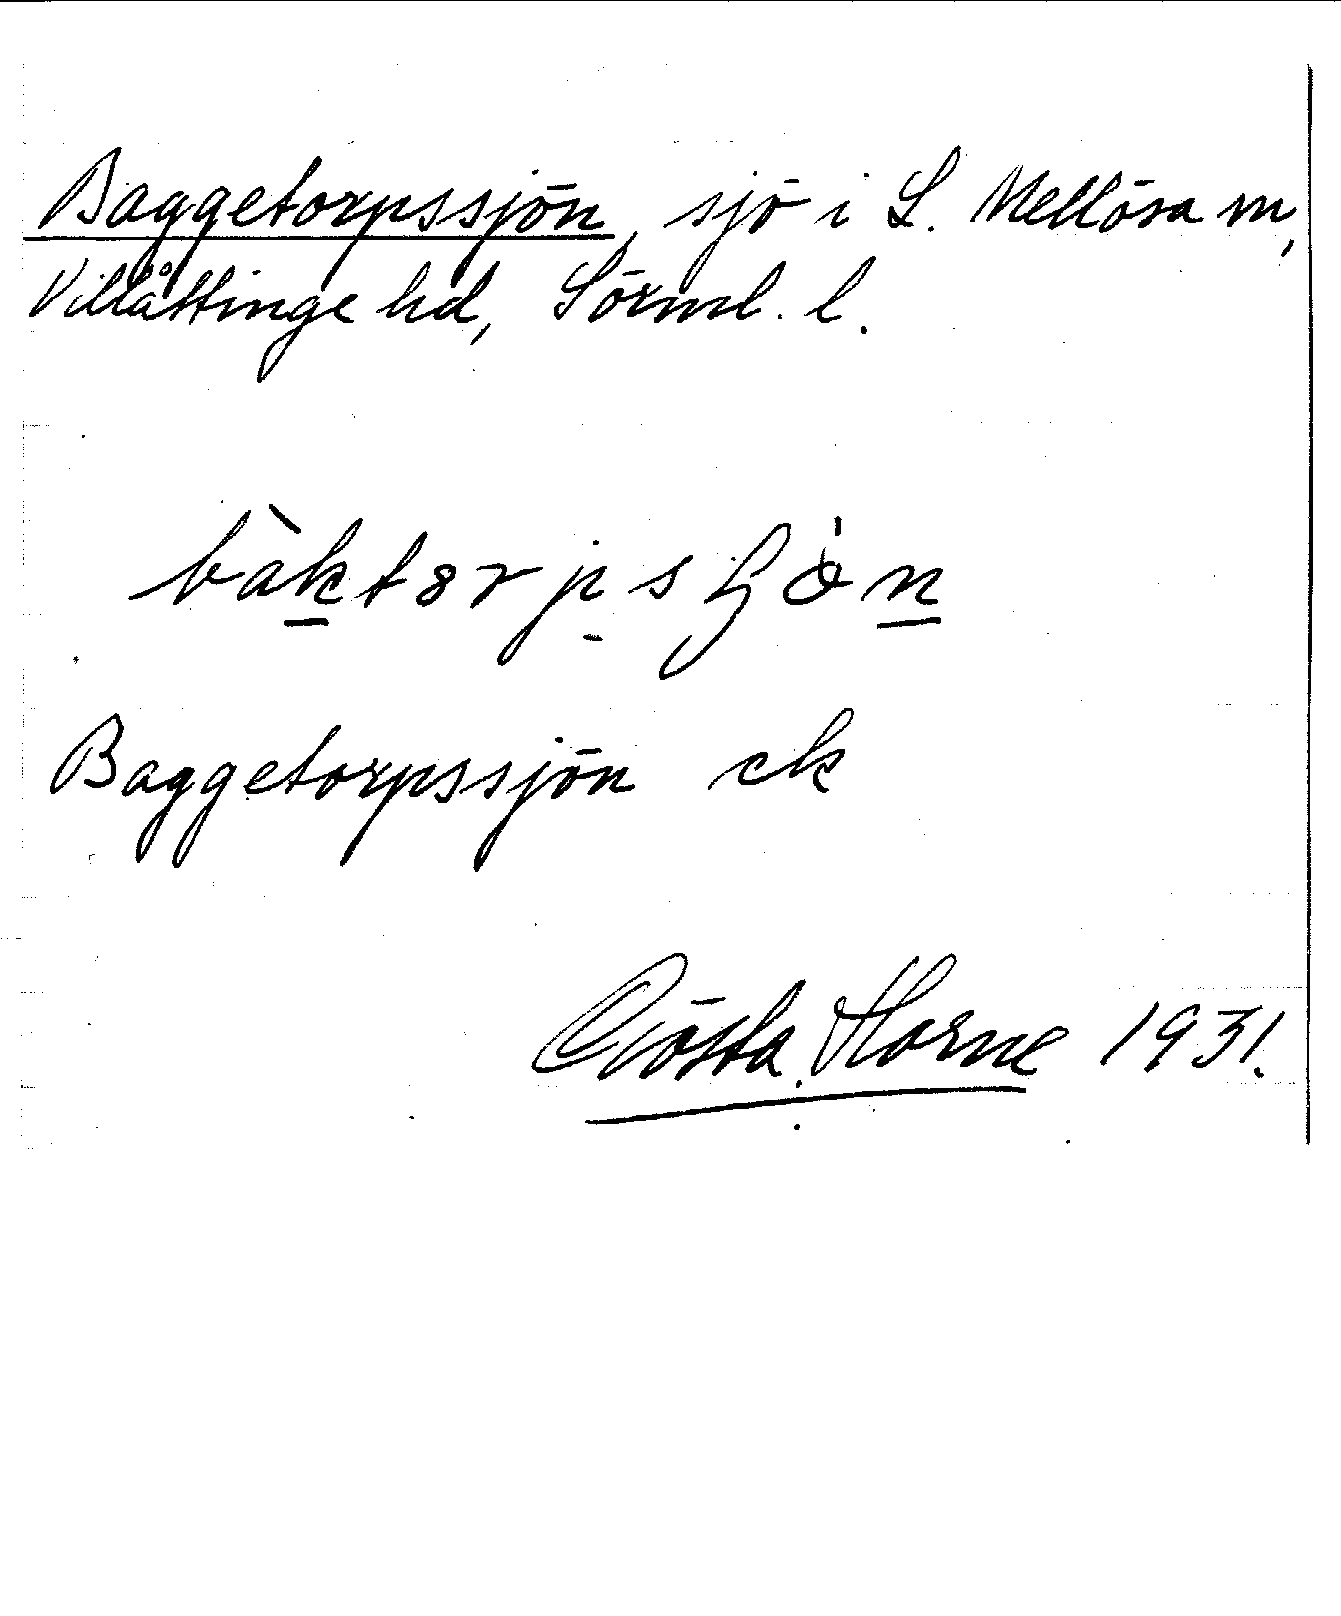 Baggetorpssjön, sjö i L. Mellösa sn,
Villåttinge hd, Sörml. l.
bàktorpsʃö̀n
Baggetorpssjön ek
Gösta Horne 1931.